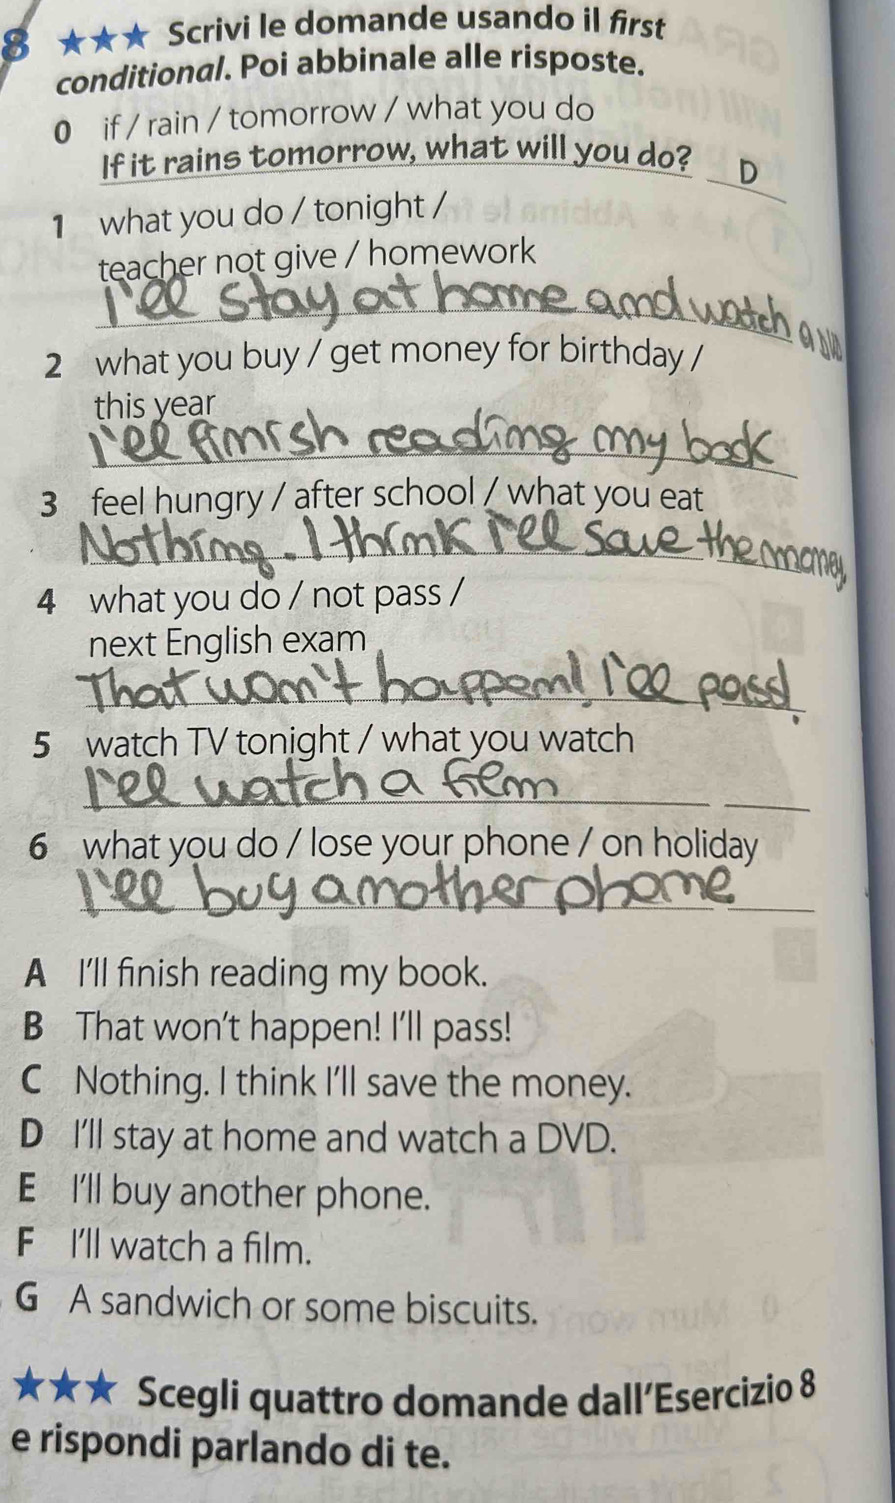 8 ★★★ Scrivi le domande usando il first
conditional. Poi abbinale alle risposte.
0 if / rain / tomorrow / what you do
If it rains tomorrow, what will you do? D
1 what you do / tonight /
teacher not give / homework
I'll stay at home and watch a
2 what you buy / get money for birthday /
this year
I'll finish reading my book
3 feel hungry / after school / what you eat
Nothing. I think I'll save the money,
4 what you do / not pass /
next English exam
That won't happen! I'll pass!
5 watch TV tonight / what you watch
I'll watch a film
6 what you do / lose your phone / on holiday
I'll buy another phone
A I'll finish reading my book.
B That won't happen! I'll pass!
C Nothing. I think I'll save the money.
D I'll stay at home and watch a DVD.
E I'll buy another phone.
F I'll watch a film.
G A sandwich or some biscuits.
★★★ Scegli quattro domande dall'Esercizio 8
e rispondi parlando di te.